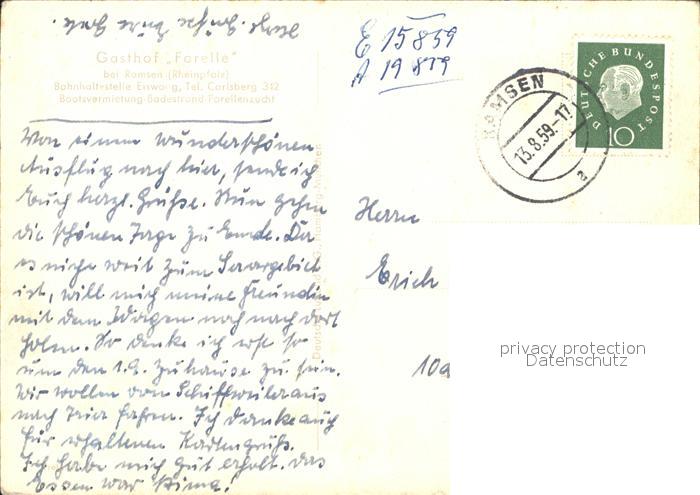 Gasthof „Forelle"
bei Ramsen (Rheinpfalz)
Bahnhaltestelle Eiswoog, Tel. Carlsberg 312
Bootsvermietung-Badestrand-Forellenzucht
Von einem wunderschönen
Ausflug nach hier, sende ich
Euch herzl. Grüße. Nun gehen
die schönen Tage zu Ende. Da
es nicht weit zum Saargebiet
ist, will mich meine Freundin
mit dem Wagen noch nach dort
holen. So denke ich erst so
um den 1.9. zuhause zu sein.
Wir wollen von Schiffweiler aus
nach Trier fahren. Ich danke auch
für erhaltenen Kartengruß.
Ich habe mich gut erholt. das
Essen war prima!
Herzl. Grüße Eure
E 15859
A 19859
RAMSEN
13.8.59.-17
a
DEUTSCHE BUNDESPOST
10
Herrn
Erich
10a
privacy protection
Datenschutz